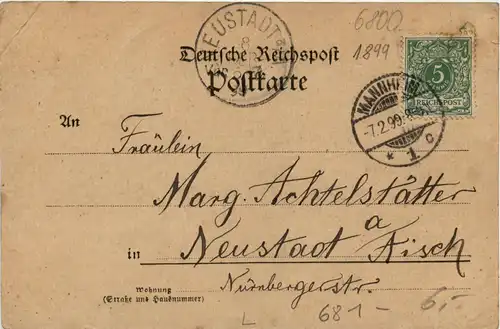 6800
1899
NEUSTADT
8
Deutsche Reichspost
Postkarte
5
REICHSPOST
MANNHEIM
-7.2.99.
* 1. c
An
Fräulein
Marg. Achtelstätter
in Neustadt a
Aisch
Nürnbergerstr.
Wohnung
(Straße und Hausnummer)
L
681-
6,-